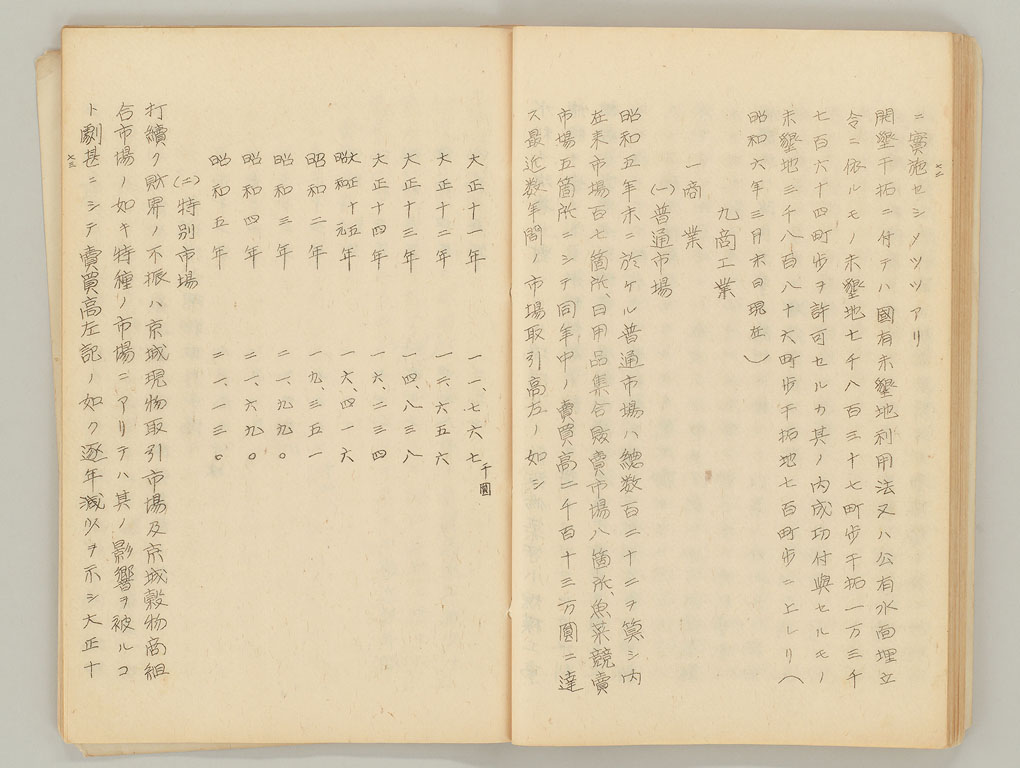 ニ實施セシメツツアリ
開墾干拓ニ付テハ國有未墾地利用法又ハ公有水面埋立
令ニ依ルモノ未墾地七千八百三十七町歩干拓一万三千
七百六十四町歩ヲ許可セルカ其ノ内成功付與セルモノ
未墾地三千八百八十六町歩干拓地七百町歩ニ上レリ(
昭和六年三月末日現在)
九商工業
一商業
(一)普通市場
昭和五年末ニ於ケル普通市場ハ總数百二十ニヲ算シ内
在来市場百七箇所、日用品集合販賣市場八箇所、魚菜競賣
市場五箇所ニシテ同年中ノ賣買高二千百十三万圓ニ達
ス最近数年間ノ市場取引高左ノ如シ
大正十一年 一一、七六七千圓
大正十二年 一三、六五六
大正十三年 一四、八三八
大正十四年 一六、二三四
大正十五年昭和元年 一六、四一六
昭和二年 一九、三五一
昭和三年 二一、九九〇
昭和四年 二一、六九〇
昭和五年 二一、一三〇
(二)特別市場
打續ク財界ノ不振ハ京城現物取引市場及京城穀物商組
合市場ノ如キ特種ノ市場ニアリテハ其ノ影響ヲ被ルコ
ト劇甚ニシテ賣買高左記ノ如ク逐年減少ヲ示シ大正十